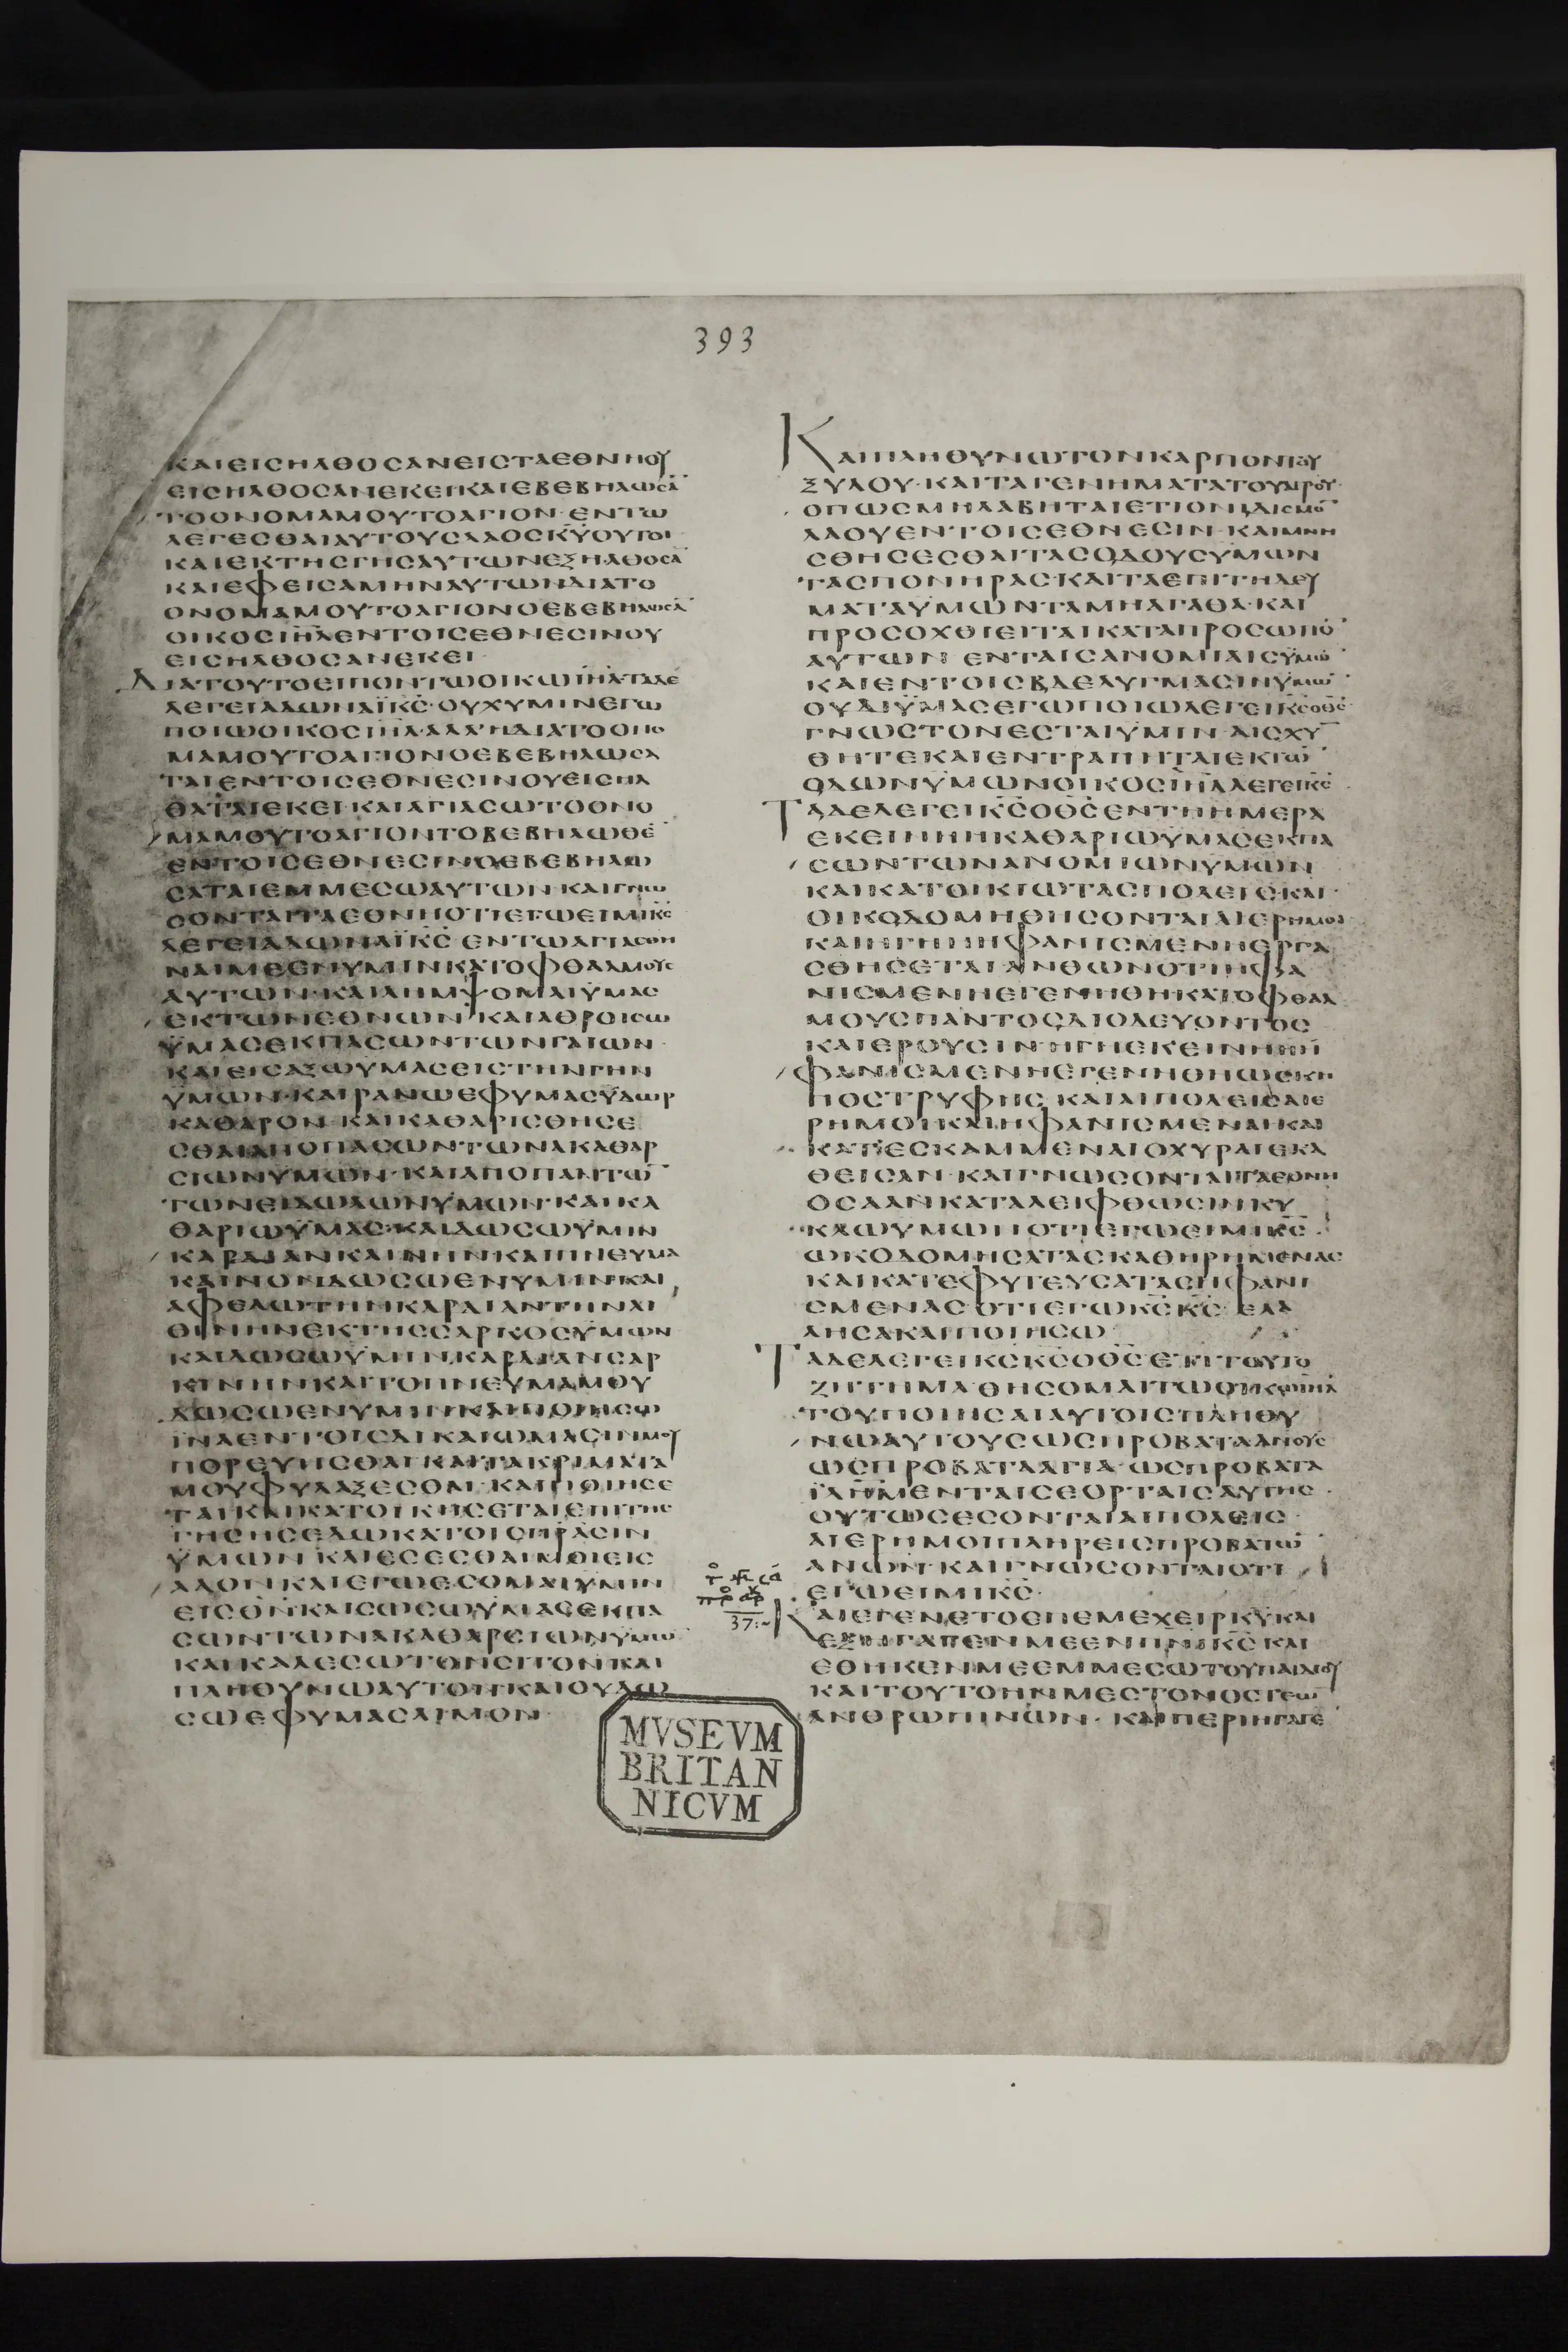 393
ΚΑΙΕΙΣΗΛΘΟΣΑΝΕΙΣΤΑΕΘΝΗΟΥ
ΕΙΣΗΛΘΟΣΑΝΕΚΕΙΚΑΙΕΒΕΒΗΛΩΣΑ̅
ΤΟΟΝΟΜΑΜΟΥΤΟΑΓΙΟΝ·ΕΝΤΩ
ΛΕΓΕΣΘΑΙΑΥΤΟΥΣΛΑΟΣΚ̅Υ̅ΟΥΤΟΙ
ΚΑΙΕΚΤΗΣΓΗΣΑΥΤΩΝΕΞΗΛΘΟΣΑ̅
ΚΑΙΕΦΕΙΣΑΜΗΝΑΥΤΩΝΔΙΑΤΟ
ΟΝΟΜΑΜΟΥΤΟΑΓΙΟΝΟΕΒΕΒΗΛΩΣΑ̅
ΟΙΚΟΣΙ̅Η̅Λ̅ΕΝΤΟΙΣΕΘΝΕΣΙΝΟΥ
ΕΙΣΗΛΘΟΣΑΝΕΚΕΙ
ΔΙΑΤΟΥΤΟΕΙΠΟΝΤΩΟΙΚΩΙ̅Η̅Λ̅ΤΑΔΕ
ΛΕΓΕΙΑΔΩΝΑΪΚ̅Σ̅·ΟΥΧΥΜΙΝΕΓΩ
ΠΟΙΩΟΙΚΟΣΙ̅Η̅Λ̅·ΑΛΛΗΔΙΑΤΟΟΝΟ
ΜΑΜΟΥΤΟΑΓΙΟΝΟΕΒΕΒΗΛΩΣΑ
ΤΑΙΕΝΤΟΙΣΕΘΝΕΣΙΝΟΥΕΙΣΗΛ
ΘΑΤΑΙΕΚΕΙ·ΚΑΙΑΓΙΑΣΩΤΟΟΝΟ
ΜΑΜΟΥΤΟΑΓΙΟΝΤΟΒΕΒΗΛΩΘΕ̅
ΕΝΤΟΙΣΕΘΝΕΣΙΝΟΕΒΕΒΗΛΩ
ΣΑΤΑΙΕΜΜΕΣΩΑΥΤΩΝ·ΚΑΙΓΝΩ
ΣΟΝΤΑΙΤΑΕΘΝΗΟΤΙΕΓΩΕΙΜΙΚ̅Σ̅
ΛΕΓΕΙΑΔΩΝΑΪΚ̅Σ̅·ΕΝΤΩΑΓΙΑΣΘΗ
ΝΑΙΜΕΕΝΥΜΙΝΚΑΤΟΦΘΑΛΜΟΥΣ
ΑΥΤΩΝ·ΚΑΙΛΗΜΨΟΜΑΙΥΜΑΣ
ΕΚΤΩΝΕΘΝΩΝ·ΚΑΙΑΘΡΟΙΣΩ
ΥΜΑΣΕΚΠΑΣΩΝΤΩΝΓΑΙΩΝ·
ΚΑΙΕΙΣΑΞΩΥΜΑΣΕΙΣΤΗΝΓΗΝ
ΥΜΩΝ·ΚΑΙΡΑΝΩΕΦΥΜΑΣΥΔΩΡ
ΚΑΘΑΡΟΝ·ΚΑΙΚΑΘΑΡΙΣΘΗΣΕ
ΣΘΑΙΑΠΟΠΑΣΩΝΤΩΝΑΚΑΘΑΡ
ΣΙΩΝΥΜΩΝ·ΚΑΙΑΠΟΠΑΝΤΩ̅
ΤΩΝΕΙΔΩΛΩΝΥΜΩΝ·ΚΑΙΚΑ
ΘΑΡΙΩΥΜΑΣ·ΚΑΙΔΩΣΩΥΜΙΝ
ΚΑΡΔΙΑΝΚΑΙΝΗΝΚΑΙΠΝΕΥΜΑ
ΚΑΙΝΟΝΔΩΣΩΕΝΥΜΙΝ·ΚΑΙ
ΑΦΕΛΩΤΗΝΚΑΡΔΙΑΝΤΗΝΛΙ
ΘΙΝΗΝΕΚΤΗΣΣΑΡΚΟΣΥΜΩΝ
ΚΑΙΔΩΣΩΥΜΙΝΚΑΡΔΙΑΝΣΑΡ
ΚΙΝΗΝΚΑΙΤΟΠΝΕΥΜΑΜΟΥ
ΔΩΣΩΕΝΥΜΙΝ·ΚΑΙΠΟΙΗΣΩ
ΙΝΑΕΝΤΟΙΣΔΙΚΑΙΩΜΑΣΙΝΜΟΥ
ΠΟΡΕΥΗΣΘΑΙ·ΚΑΙΤΑΚΡΙΜΑΤΑ
ΜΟΥΦΥΛΑΞΕΣΘΑΙ·ΚΑΙΠΟΙΗΣΕ
ΤΑΙΚΑΙΚΑΤΟΙΚΗΣΕΤΑΙΕΠΙΤΗΣ
ΓΗΣΗΣΕΔΩΚΑΤΟΙΣΠΡΑΣΙΝ
ΥΜΩΝ·ΚΑΙΕΣΕΣΘΑΙΜΟΙΕΙΣ
ΛΑΟΝ·ΚΑΙΕΓΩΕΣΟΜΑΙΥΜΙΝ
ΕΙΣΘΝ·ΚΑΙΣΩΣΩΥΜΑΣΕΚΠΑ
ΣΩΝΤΩΝΑΚΑΘΑΡΣΙΩΝΥΜΩ̅
ΚΑΙΚΑΛΕΣΩΤΟΝΣΙΤΟΝΚΑΙ
ΠΛΗΘΥΝΩΑΥΤΟΝ·ΚΑΙΟΥΔΩ
ΣΩΕΦΥΜΑΣΛΙΜΟΝ·
ΚΑΙΠΛΗΘΥΝΩΤΟΝΚΑΡΠΟΝΤΟΥ
ΞΥΛΟΥ·ΚΑΙΤΑΓΕΝΗΜΑΤΑΤΟΥΑΓΡΟΥ·
ΟΠΩΣΜΗΛΑΒΗΤΑΙΕΤΙΟΝΙΔΙΣΜΟ̅
ΛΑΟΥΕΝΤΟΙΣΕΘΝΕΣΙΝ·ΚΑΙΜΝΗ
ΣΘΗΣΕΣΘΑΙΤΑΣΟΔΟΥΣΥΜΩΝ
ΤΑΣΠΟΝΗΡΑΣ·ΚΑΙΤΑΕΠΙΤΗΔΕΥ
ΜΑΤΑΥΜΩΝΤΑΜΗΑΓΑΘΑ·ΚΑΙ
ΠΡΟΣΟΧΘΙΕΙΤΑΙΚΑΤΑΠΡΟΣΩΠΟ̅
ΑΥΤΩΝ·ΕΝΤΑΙΣΑΝΟΜΙΑΙΣΥΜΩ̅
ΚΑΙΕΝΤΟΙΣΒΔΕΛΥΓΜΑΣΙΝΥΜΩ̅
ΟΥΔΙΥΜΑΣΕΓΩΠΟΙΩΛΕΓΕΙΚ̅Σ̅ΟΘ̅Σ̅
ΓΝΩΣΤΟΝΕΣΤΑΙΥΜΙΝ·ΑΙΣΧΥ̅
ΘΗΤΕΚΑΙΕΝΤΡΑΠΗΤΑΙΕΚΤΩ̅
ΟΔΩΝΥΜΩΝΟΙΚΟΣΙ̅Η̅Λ̅ΛΕΓΕΙΚ̅Σ̅
ΤΑΔΕΛΕΓΕΙΚ̅Σ̅ΟΘ̅Σ̅ΕΝΤΗΗΜΕΡΑ
ΕΚΕΙΝΗΗΚΑΘΑΡΙΩΥΜΑΣΕΚΠΑ
ΣΩΝΤΩΝΑΝΟΜΙΩΝΥΜΩΝ
ΚΑΙΚΑΤΟΙΚΙΩΤΑΣΠΟΛΕΙΣΚΑΙ
ΟΙΚΟΔΟΜΗΘΗΣΟΝΤΑΙΑΙΕΡΗΜΟΙ
ΚΑΙΗΓΗΗΗΦΑΝΙΣΜΕΝΗΕΡΓΑ
ΣΘΗΣΕΤΑΙΑΝΘΩΝΟΤΙΗΦΑ
ΝΙΣΜΕΝΗΕΓΕΝΗΘΗ·ΚΑΤΟΦΘΑΛ
ΜΟΥΣΠΑΝΤΟΣΔΙΟΔΕΥΟΝΤΟΣ
ΚΑΙΕΡΟΥΣΙΝ·ΗΓΗΕΚΕΙΝΗΗΗ
ΦΑΝΙΣΜΕΝΗΕΓΕΝΗΘΗΩΣΚΗ
ΠΟΣΤΡΥΦΗΣ·ΚΑΙΑΙΠΟΛΕΙΣΑΙΕ
ΡΗΜΟΙΚΑΙΗΦΑΝΙΣΜΕΝΑΙΚΑΙ
ΚΑΤΕΣΚΑΜΜΕΝΑΙΟΧΥΡΑΙΕΚΑ
ΘΕΙΣΑΝ·ΚΑΙΓΝΩΣΟΝΤΑΙΤΑΕΘΝΗ
ΟΣΑΑΝΚΑΤΑΛΕΙΦΘΩΣΙΝΚΥ
ΚΛΩΥΜΩΝΟΤΙΕΓΩΕΙΜΙΚ̅Σ̅
ΩΚΟΔΟΜΗΣΑΤΑΣΚΑΘΗΡΗΜΕΝΑΣ
ΚΑΙΚΑΤΕΦΥΤΕΥΣΑΤΑΣΗΦΑΝΙ
ΣΜΕΝΑΣ·ΟΤΙΕΓΩΚ̅Σ̅Κ̅Σ̅ΕΛΑ
ΛΗΣΑΚΑΙΠΟΙΗΣΩ
ΤΑΔΕΛΕΓΕΙΚ̅Σ̅Κ̅Σ̅ΟΘ̅Σ̅ΕΤΙΤΟΥΤΟ
ΖΗΤΗΜΑΘΗΣΟΜΑΙΤΩΟΙΚΩΙ̅Η̅Λ̅
ΤΟΥΠΟΙΗΣΑΙΑΥΤΟΙΣΠΛΗΘΥ
ΝΩΑΥΤΟΥΣΩΣΠΡΟΒΑΤΑΑΝΟΥΣ
ΩΣΠΡΟΒΑΤΑΑΓΙΑ·ΩΣΠΡΟΒΑΤΑ
ΙΛΗΜΕΝΤΑΙΣΕΟΡΤΑΙΣΑΥΤΗΣ·
ΟΥΤΩΣΕΣΟΝΤΑΙΑΙΠΟΛΕΙΣ
ΑΙΕΡΗΜΟΙΠΛΗΡΕΙΣΠΡΟΒΑΤΩ̅
ΑΝΩΝ·ΚΑΙΓΝΩΣΟΝΤΑΙΟΤΙ
ΕΓΩΕΙΜΙΚ̅Σ̅·
ΚΑΙΕΓΕΝΕΤΟΕΠΕΜΕΧΕΙΡΚ̅Υ̅ΚΑΙ
ΕΞΗΓΑΓΕΝΜΕΕΝΠ̅Ν̅Ι̅Κ̅Σ̅ΚΑΙ
ΕΘΗΚΕΝΜΕΕΜΜΕΣΩΤΟΥΠΑΙΔΙΟΥ
ΚΑΙΤΟΥΤΟΗΝΜΕΣΤΟΝΟΣΤΕΩ̅
ΑΝΘΡΩΠΙΝΩΝ·ΚΑΙΠΕΡΙΗΓΑΓΕ
37:~
MVSEVM
BRITAN
NICVM